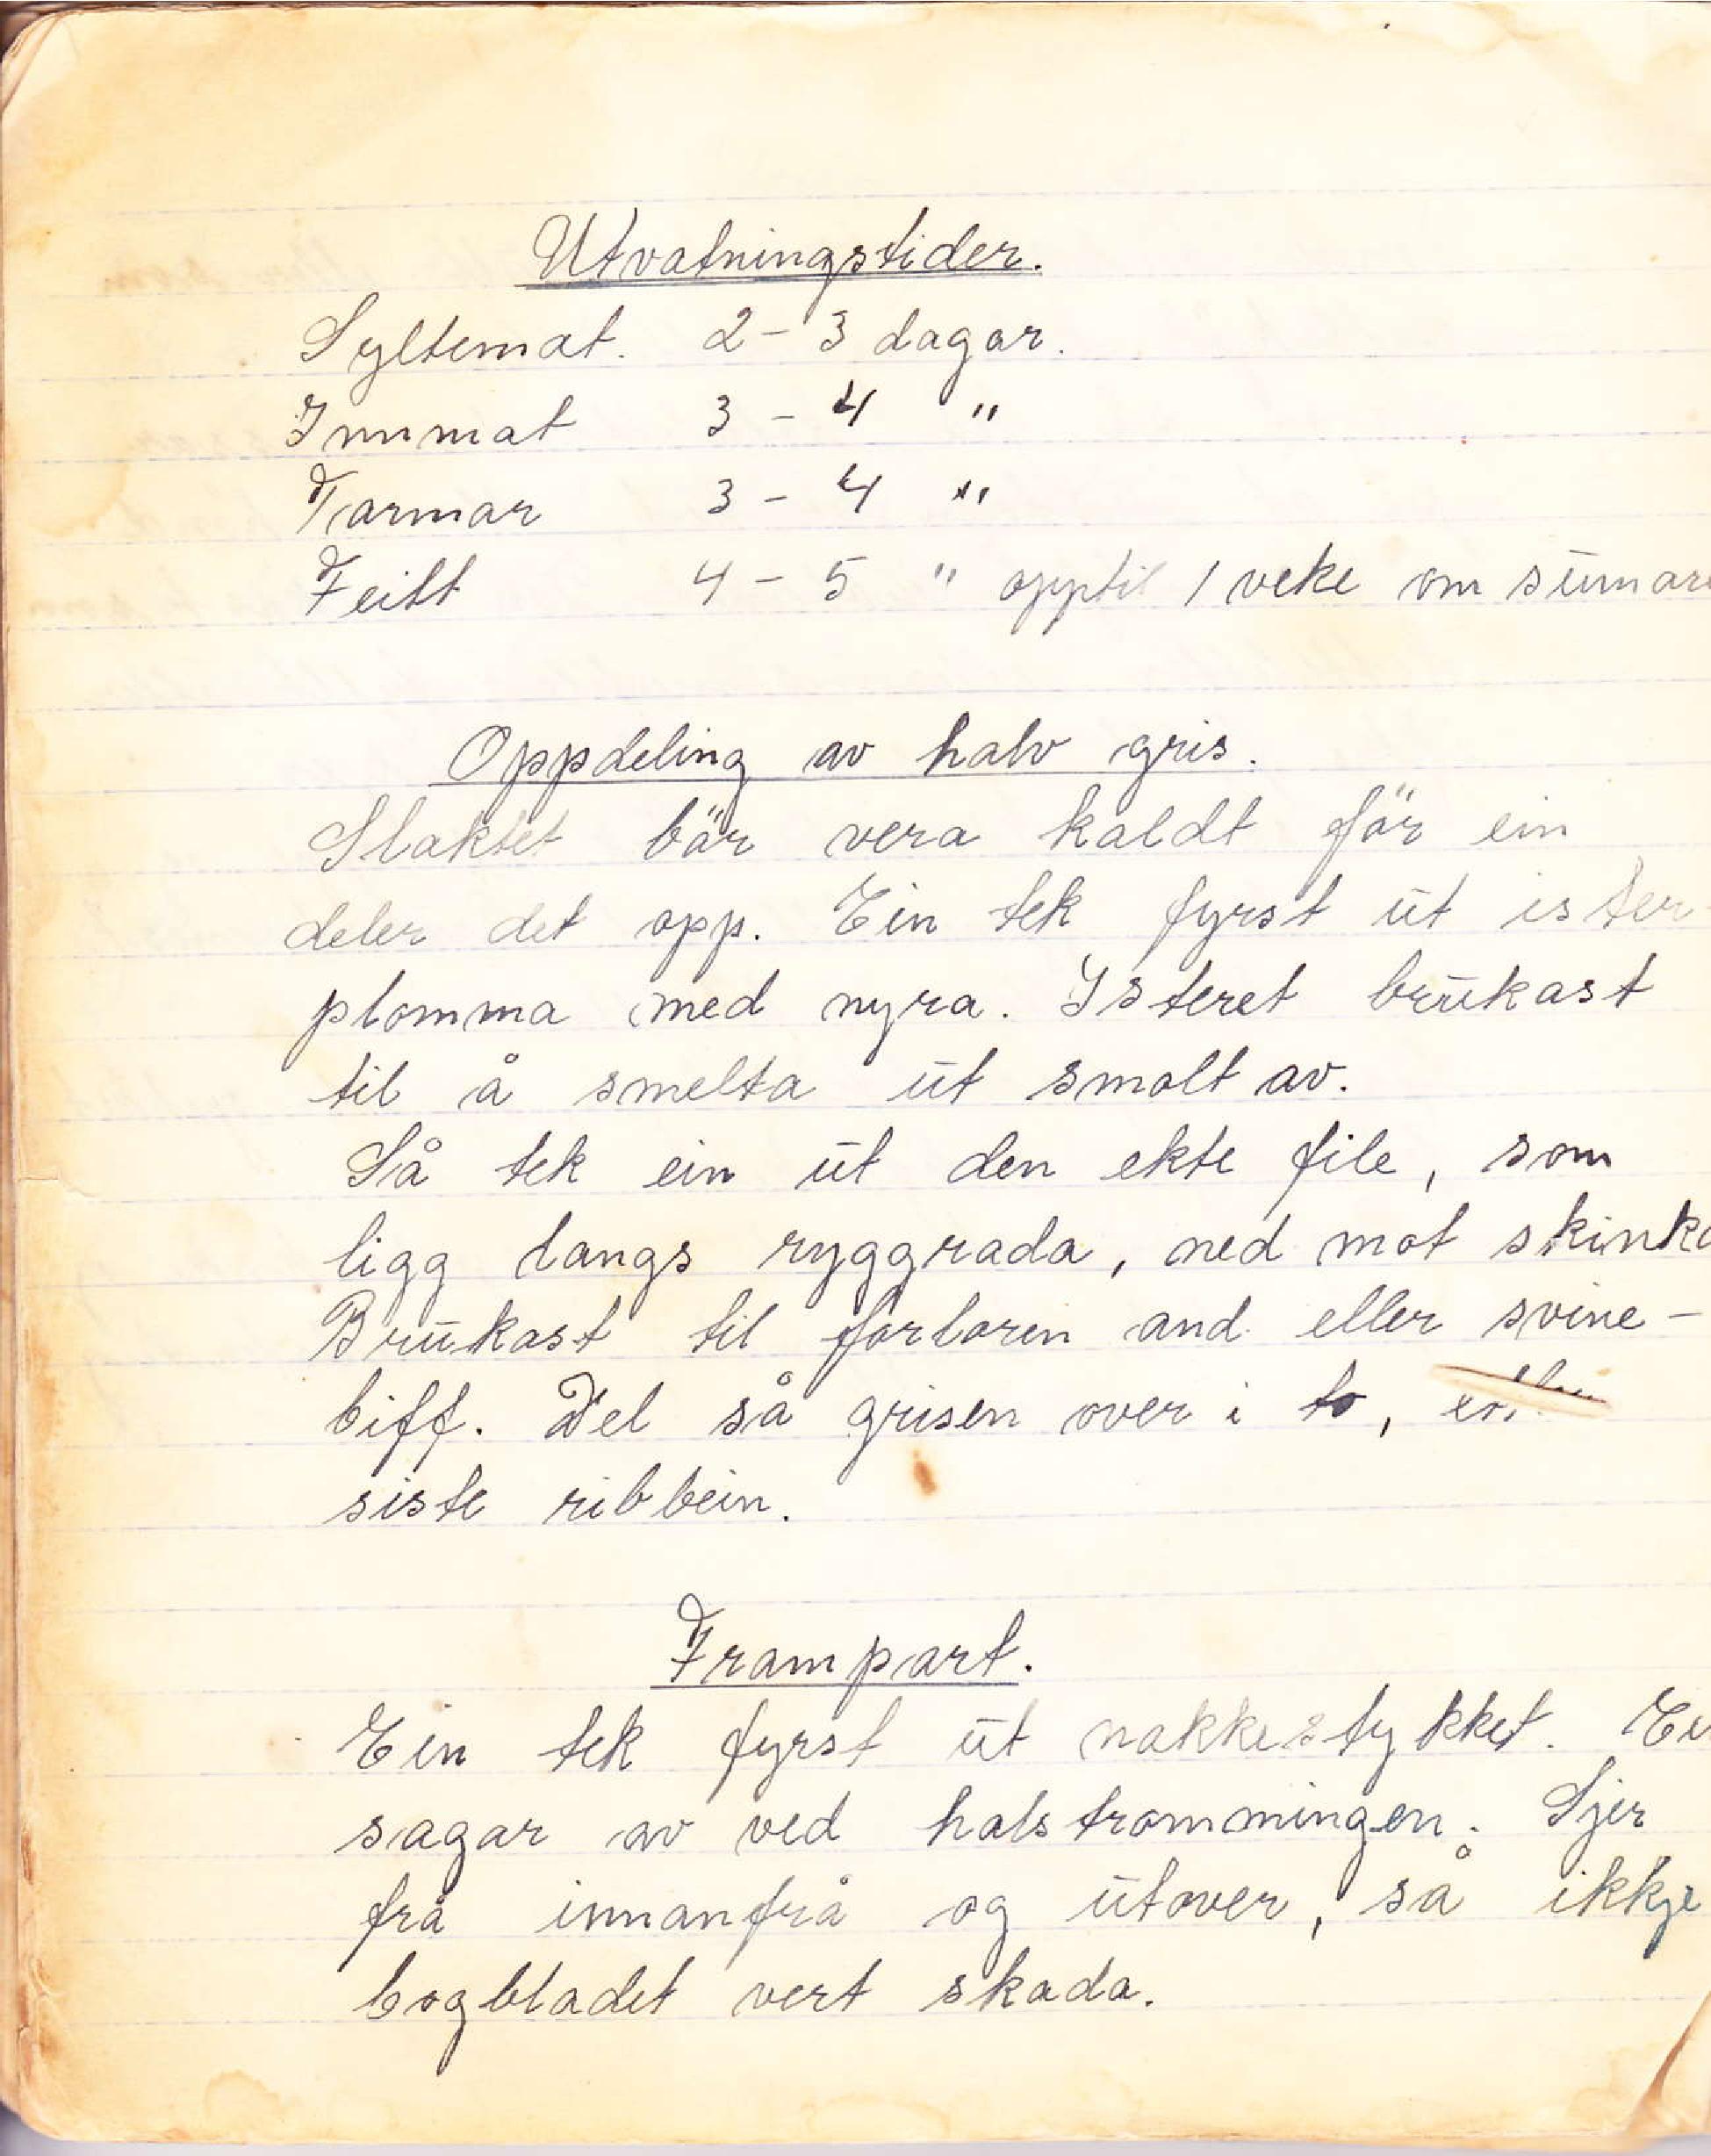 Utvatningstider.
Syltemat. 2 - 3 dagar.
Innmat 3 - 4 "
Tarmar 3 - 4 "
Feitt 4 - 5 " opptil 1 veke om sūmar
Oppdeling av halv gris.
Slaktet bör vera kaldt för ein
deler det opp. Ein tek fyrst ūt ister-
plomma med nyra. Isteret brūkast
til å smelta ūt smolt av.
Så tek ein ūt den ekte file, som
ligg langs ryggrada, ned mot skinka
Brūkast til forloren and eller svine-
biff. Del så grisen over i to,
siste ribbein.
Frampart.
Ein tek fyrst ūt nakkestykket. Ei
sagar av ved halstrommingen. Sjer
frå innanfrå og ūtover, så ikkje
bogbladet vert skada.